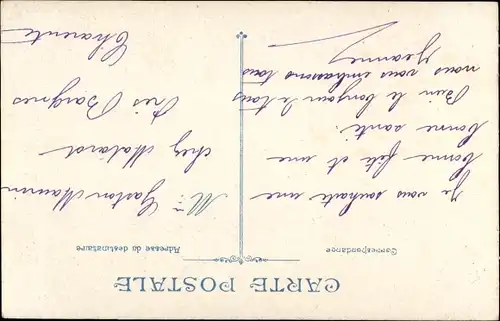 CARTE POSTALE
Correspondance
Adresse du destinataire
Je vous souhaite une
bonne fête et une
bonne santé.
Bien le bonjour de tous
nous vous embrassons tous
Jeanne
Mr Gaston Maurin
chez Malard
Près Baignes
Charente